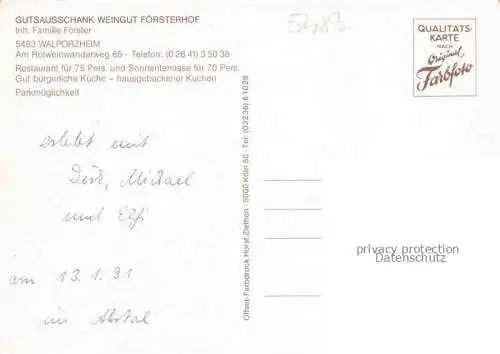 GUTSAUSSCHANK WEINGUT FÖRSTERHOF
Inh. Familie Förster
5483 WALPORZHEIM
Am Rotweinwanderweg 65 - Telefon: (0 26 41) 3 50 38
Restaurant für 75 Pers. und Sonnenterrasse für 70 Pers.
Gut bürgerliche Küche – hausgebackener Kuchen
Parkmöglichkeit
5483
QUALITÄTS-
KARTE
NACH
Original
Farbfoto
erlebt mit
Dirk, Michael
und Elfi
am 13.1.91
im Ahrtal
Offset-Farbdruck Horst Ziethen · 5000 Köln 50 · Tel. (02236) 61028
privacy protection
Datenschutz